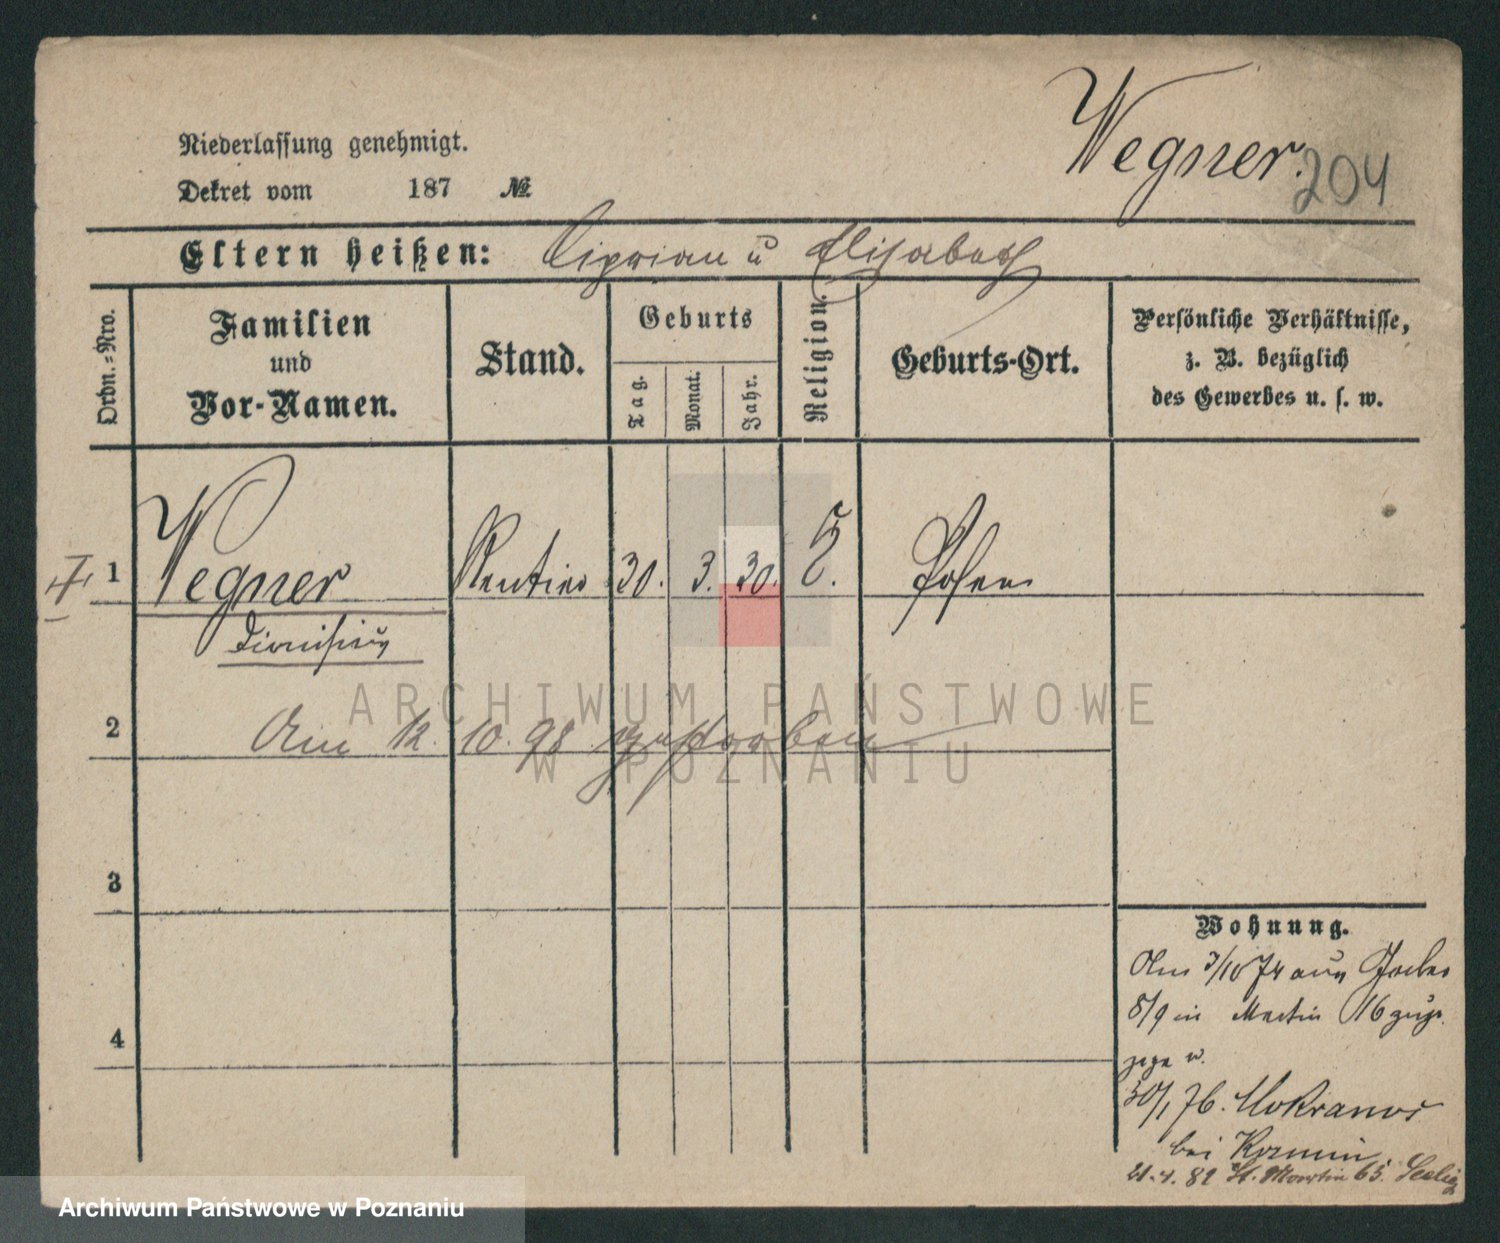 Wegner.
204
Niederlassung genehmigt.
Dekret vom 187 №
Eltern heißen: Ciprian u Elisabeth
Ordn.-Nro.
Familien
und
Vor-Namen.
Stand.
Geburts
Tag.
Monat.
Jahr.
Religion.
Geburts-Ort.
Persönliche Verhältnisse,
z. B. bezüglich
des Gewerbes u. s. w.
1 Wegner Rentier 30. 3. 30. Posen
Dionisius
ARCHIWUM PAŃSTWOWE
W POZNANIU
2 Am 12. 10. 98 gestorben
3
4
Wohnung.
Am 3/10 74 aus
8/9 in Martin 16
30/1 76. Mokranos
bei Kozmin
21.4. 82 St. Martin 65.
Archiwum Państwowe w Poznaniu